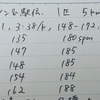 ン&駅伝, 1区 5km
, 3:38/K, 148-192,
135 180 spm
147 185
148 185
154 184
162 188